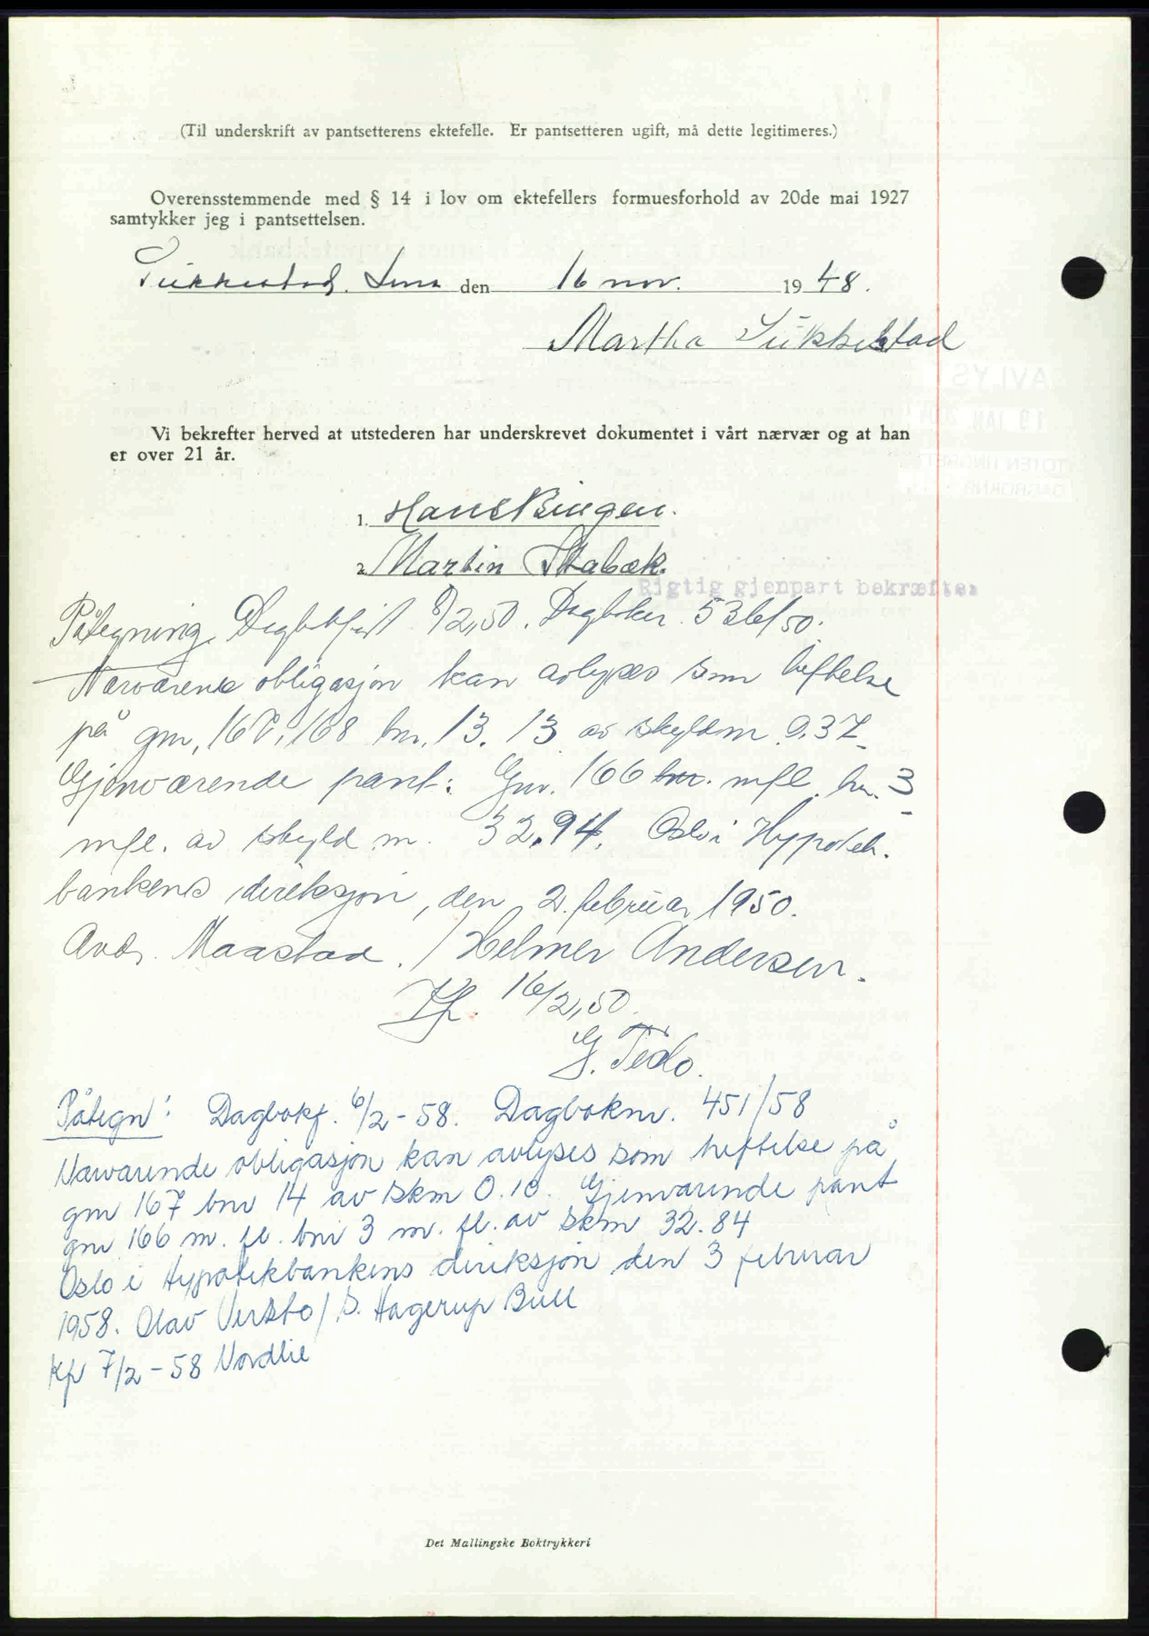 (Til underskrift av pantsetterens ektefelle. Er pantsetteren ugift, må dette legitimeres.)
Overensstemmende med § 14 i lov om ektefellers formuesforhold av 20de mai 1927
samtykker jeg i pantsettelsen.
Sukkestad. Lena den 16 nov. 1948.
Martha Sukkestad
Vi bekrefter herved at utstederen har underskrevet dokumentet i vårt nærvær og at han
er over 21 år.
1. Hans Bingen.
2. Martin Stabæk.
Rigtig gjenpart bekræftes
Påtegning. Dagbokført 8/2,50. Dagboknr. 536/50.
Nærværende obligasjon kan avlyses som heftelse
på gnr. 168 bnr. 13. 13 av skyldm. 0.37.
Gjenværende pant: Gnr. 166 mfl. bnr. 3
mfl. av skyld m. 32.94. Oslo i Hypotek-
bankens direksjon, den 2. februar 1950.
Andr. Maastad. / Helmer Andersen.
Kf. 16/2,50.
G. Tedo.
Påtegn: Dagbokf. 6/2-58. Dagboknr. 451/58
Nærværende obligasjon kan avlyses som heftelse på
gnr 167 bnr 14 av skm 0.10. Gjenværende pant
gnr 166 m. fl. bnr 3 m. fl. av skm 32.84
Oslo i Hypotekbankens direksjon den 3 februar
1958. Olav Versto / S. Hagerup Bull
Kf 7/2-58 Nordlie
Det Mallingske Boktrykkeri